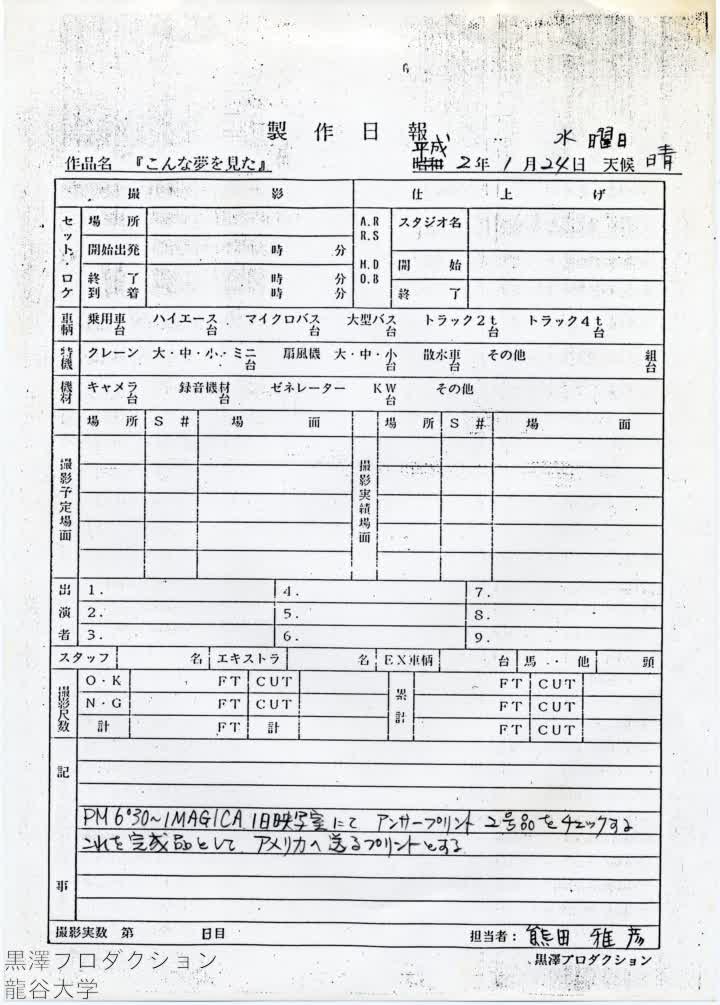 製作日報
水曜日
作品名 『こんな夢を見た』 平成 2年 1月24日 天候 晴
撮 影 仕 上 げ
セット・ロケ 場所 A.R R.S スタジオ名
開始出発 時 分 M.D O.B 開始
終了 時 分 終了
到着 時 分
車輌 乗用車 台 ハイエース 台 マイクロバス 台 大型バス 台 トラック2t 台 トラック4t 台
特機 クレーン 大・中・小・ミニ 台 扇風機 大・中・小 台 散水車 台 その他 組 台
機材 キャメラ 台 録音機材 台 ゼネレーター KW 台 その他
場所 S# 場面 場所 S# 場面
撮影予定場面 撮影実績場面
出演者 1. 4. 7.
2. 5. 8.
3. 6. 9.
スタッフ 名 エキストラ 名 EX車輌 台 馬・他 頭
撮影尺数 O・K FT CUT 累計 FT CUT
N・G FT CUT FT CUT
計 FT 計 FT CUT
記事
PM6:30~IMAGICA 1日映写室にて アンサープリント 2号品をチェックする
これを完成品として アメリカへ送るプリントとする
撮影実数 第 日目 担当者: 熊田 雅彦
黒澤プロダクション
黒澤プロダクション
龍谷大学